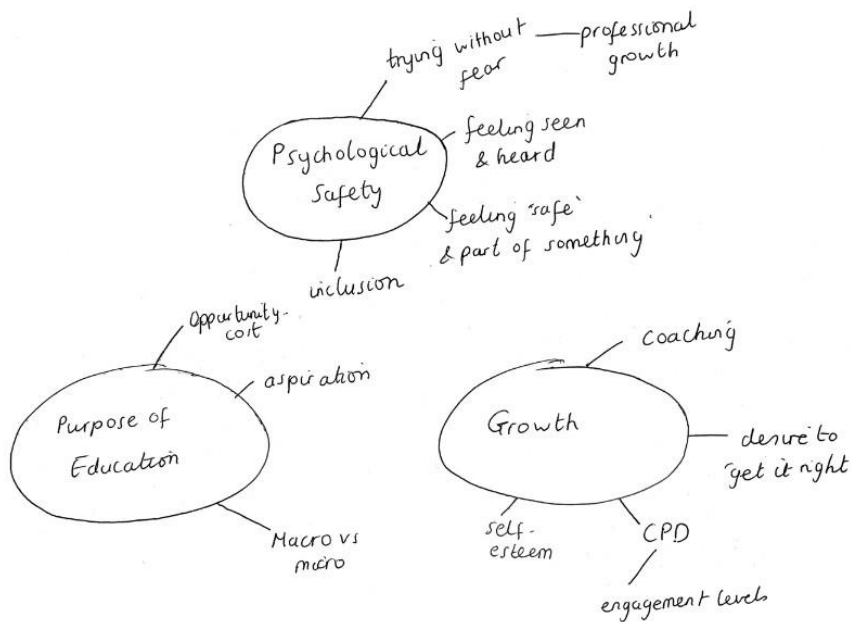 trying without
fear
professional
growth
Psychological
Safety
feeling seen
& heard
feeling 'safe'
& part of something'
inclusion
Opportunity-
cost
aspiration
Purpose of
Education
Macro vs
micro
coaching
Growth
desire to
'get it right
self-
esteem
CPD
engagement levels